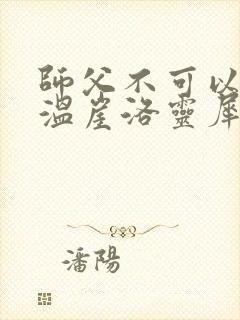 師父不可以
溫崖洛靈犀
潘陽